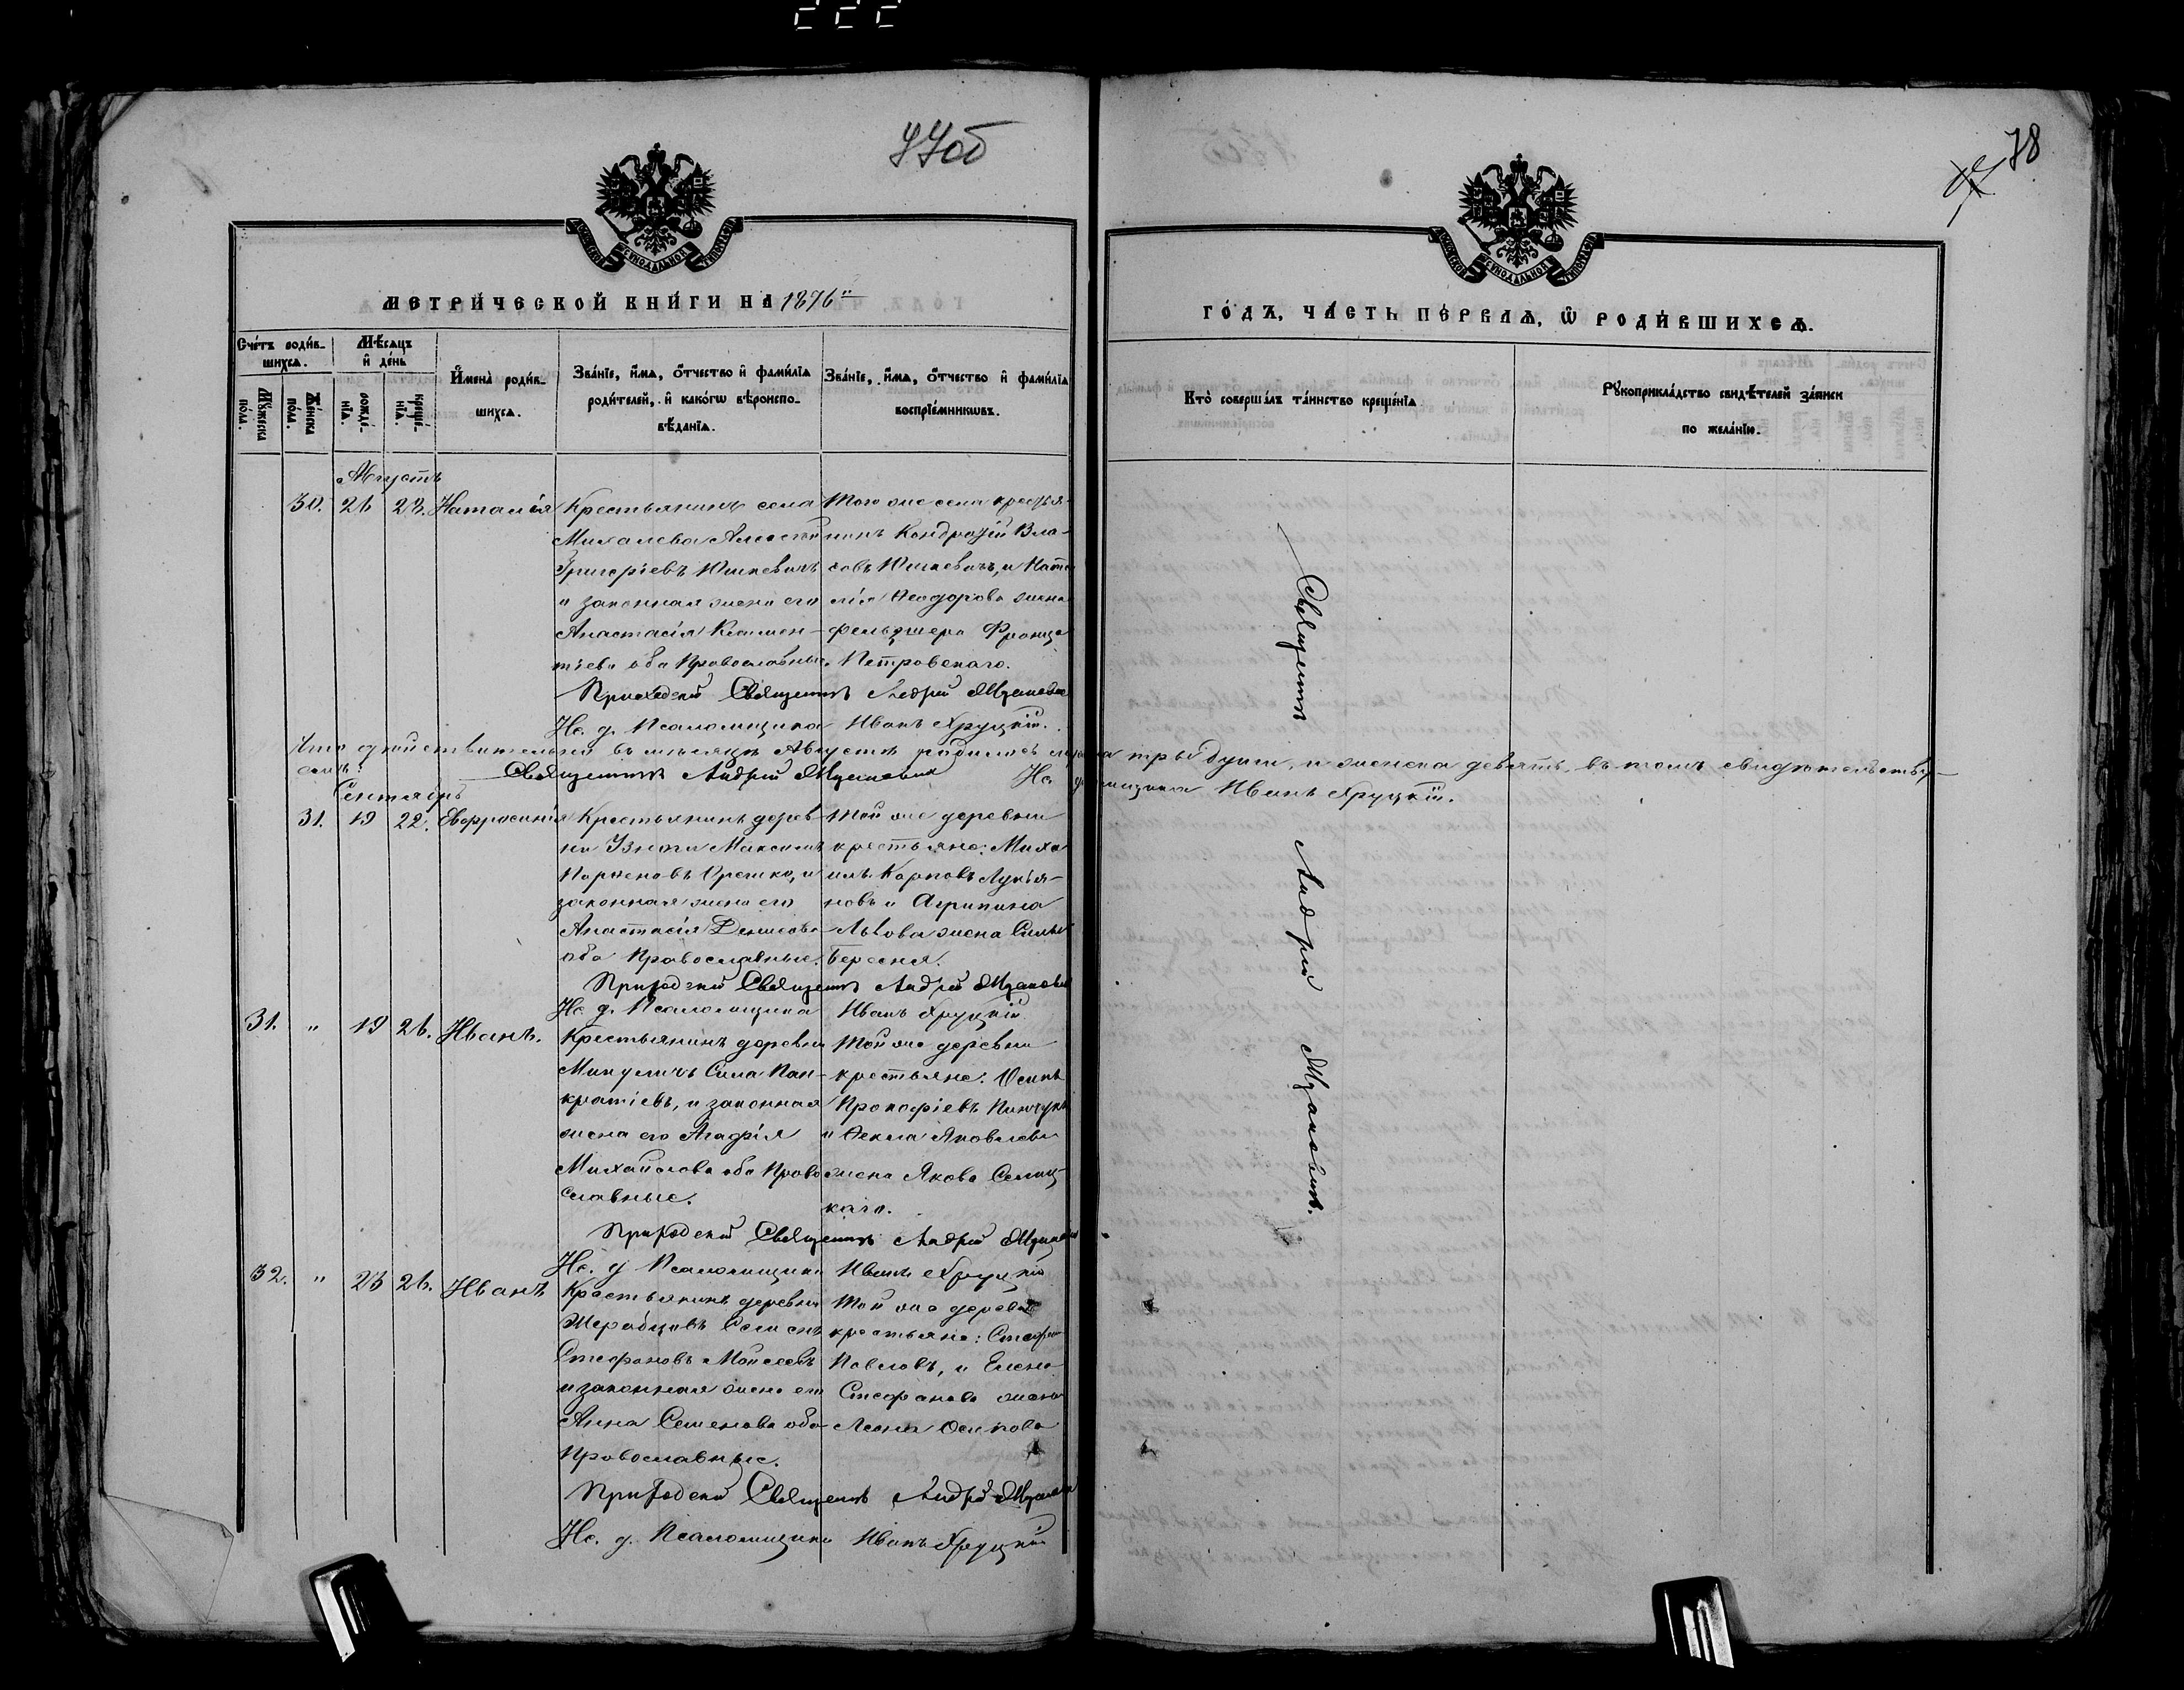 222
77об
78
МЕТРИ́ЧЕСКОЙ КНИ́ГИ НА 1876й
ГО́ДЪ, ЧА́СТЬ ПЕ́РВАѦ, Ѡ РОДИ́ВШИХСѦ.
Сче́тъ роди́в-
шихсѧ.
Мꙋ́жеска по́ла.
Же́нска по́ла.
Мѣ́сяцъ и де́нь
рожде́-
нїѧ.
креще́-
нїѧ.
Имена̀ роди́в-
шихсѧ.
Зва́нїе, и́мѧ, о́тчество и фами́лїѧ
роди́телей, и како́гѡ вѣроиспо-
вѣ́данїѧ.
Зва́нїе, и́мѧ, о́тчество и фами́лїѧ
воспрїе́мникѡвъ.
Кто̀ соверша́лъ та́инство креще́нїѧ.
Рꙋкоприкла́дство свидѣ́телей за́писи
по жела́нїю.
Августъ
30. 26 28. Наталія
Крестьянинъ села
Михалева Алексій
Григоріевъ Юшкевичъ
и законная жена его
Анастасія Климен-
тіева оба Православные.
Того же села крестья-
нинъ Кондратій Вла-
совъ Юшкевичъ, и Ната
лія Ѳеодорова жена
фельдшера Франца
Петровскаго.
Приходскій Священникъ Андрей
Ис. д. Псаломщика Иванъ Хруцкій.
Что действительно въ месяце Августе родилось мужеска три души, и женска девять, въ томъ свидетельству-
емъ:
Священникъ Андрей
Ис. д. Псаломщика Иванъ Хруцкій.
Сентябрь
31. 19 22. Евфросинія
Крестьянинъ дерев
ни Узноги Максимъ
Парѳеновъ Орешко, и
законная жена его
Анастасія Денисова
оба Православные.
Той же деревни
крестьяне: Миха
илъ Карповъ Лукья-
новъ и Агрипина
Львова жена Силы
Бересня.
Приходскій Священникъ Андрей
Ис. д. Псаломщика Иванъ Хруцкій
31. " 19 26. Иванъ.
Крестьянинъ деревни
Микуличъ Сила Пан-
кратіевъ, и законная
жена его Агафія
Михайлова оба Право
славные.
Той же деревни
крестьяне: Осипъ
Прокофіевъ Пинчукъ
и Ѳекла Яковлева
жена Якова Селиц-
каго.
Приходскій Священникъ Андрей
Ис. д. Псаломщика Иванъ Хруцкій
32. " 23 26. Иванъ
Крестьянинъ деревни
Жеребцовъ Семенъ
Стефановъ Моисеевъ
и законная жена его
Анна Семенова оба
Православные.
Той же деревни
крестьяне: Стефан
Павловъ, и Елена
Стефанова жена
Леона Осипова
Приходскій Священникъ Андрей
Ис. д. Псаломщика Иванъ Хруцкій
Священникъ Андрей